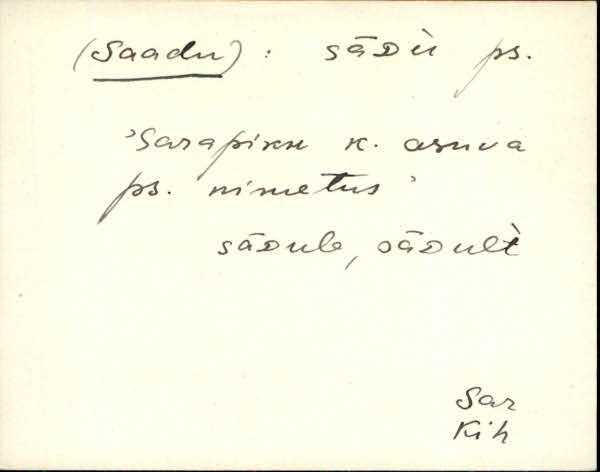 (Saadu) : sāDù ps.
'Sarapiku k. asuva
ps. nimetus'
sāDule, sāDult
Sar
Kih